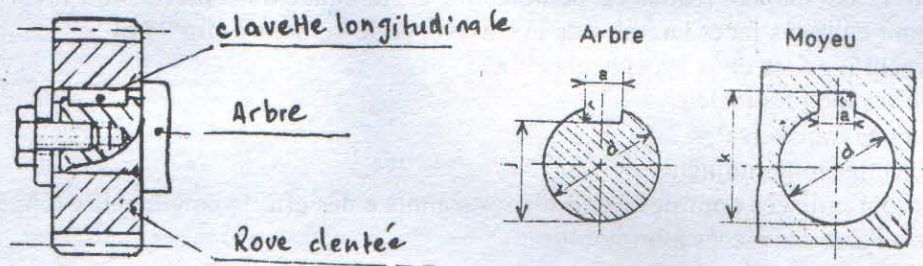 clavette longitudinale
Arbre
Roue dentée
Arbre
a
j
d
Moyeu
k
a
d